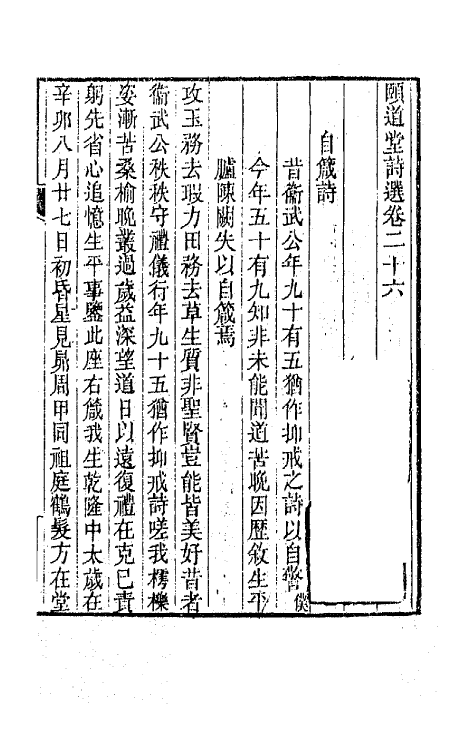 頤道堂詩選卷二十六
自箴詩
昔衞武公年九十有五猶作抑戒之詩以自警僕
今年五十有九知非未能聞道苦晚因歷敘生平
臚陳闕失以自箴焉
攻玉務去瑕力田務去草生質非聖賢豈能皆美好昔者
衞武公秩秩守禮儀行年九十五猶作抑戒詩嗟我樗櫟
姿漸苦桑榆晚叢過歲益深望道日以遠復禮在克己責
躬先省心追憶生平事鑒此座右箴我生乾隆中太歲在
辛卯八月廿七日初昏星見昴周甲同祖庭鶴髮方在堂